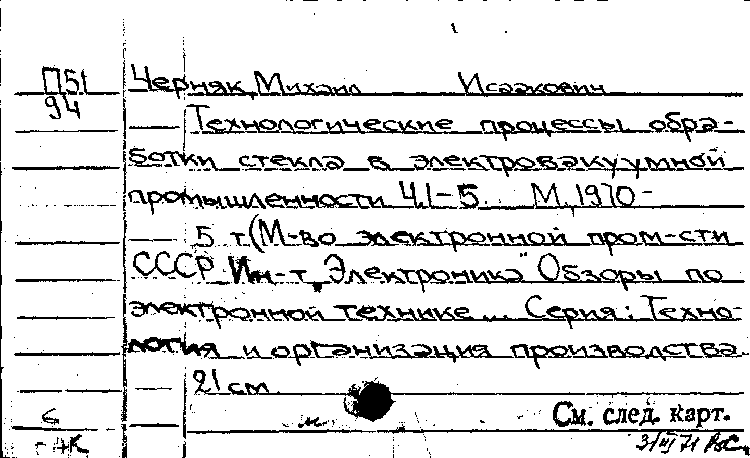 П51 Черняк, Михаил Исаакович
94
Технологические процессы обра-
ботки стекла в электровакуумной
промышленности Ч.1-5. М., 1970-
5 т. (М-во электронной пром-сти
СССР. Ин-т "Электроника" Обзоры по
электронной технике... Серия: Техно-
логия и организация производства
21 см
См. след. карт.
3/III 71